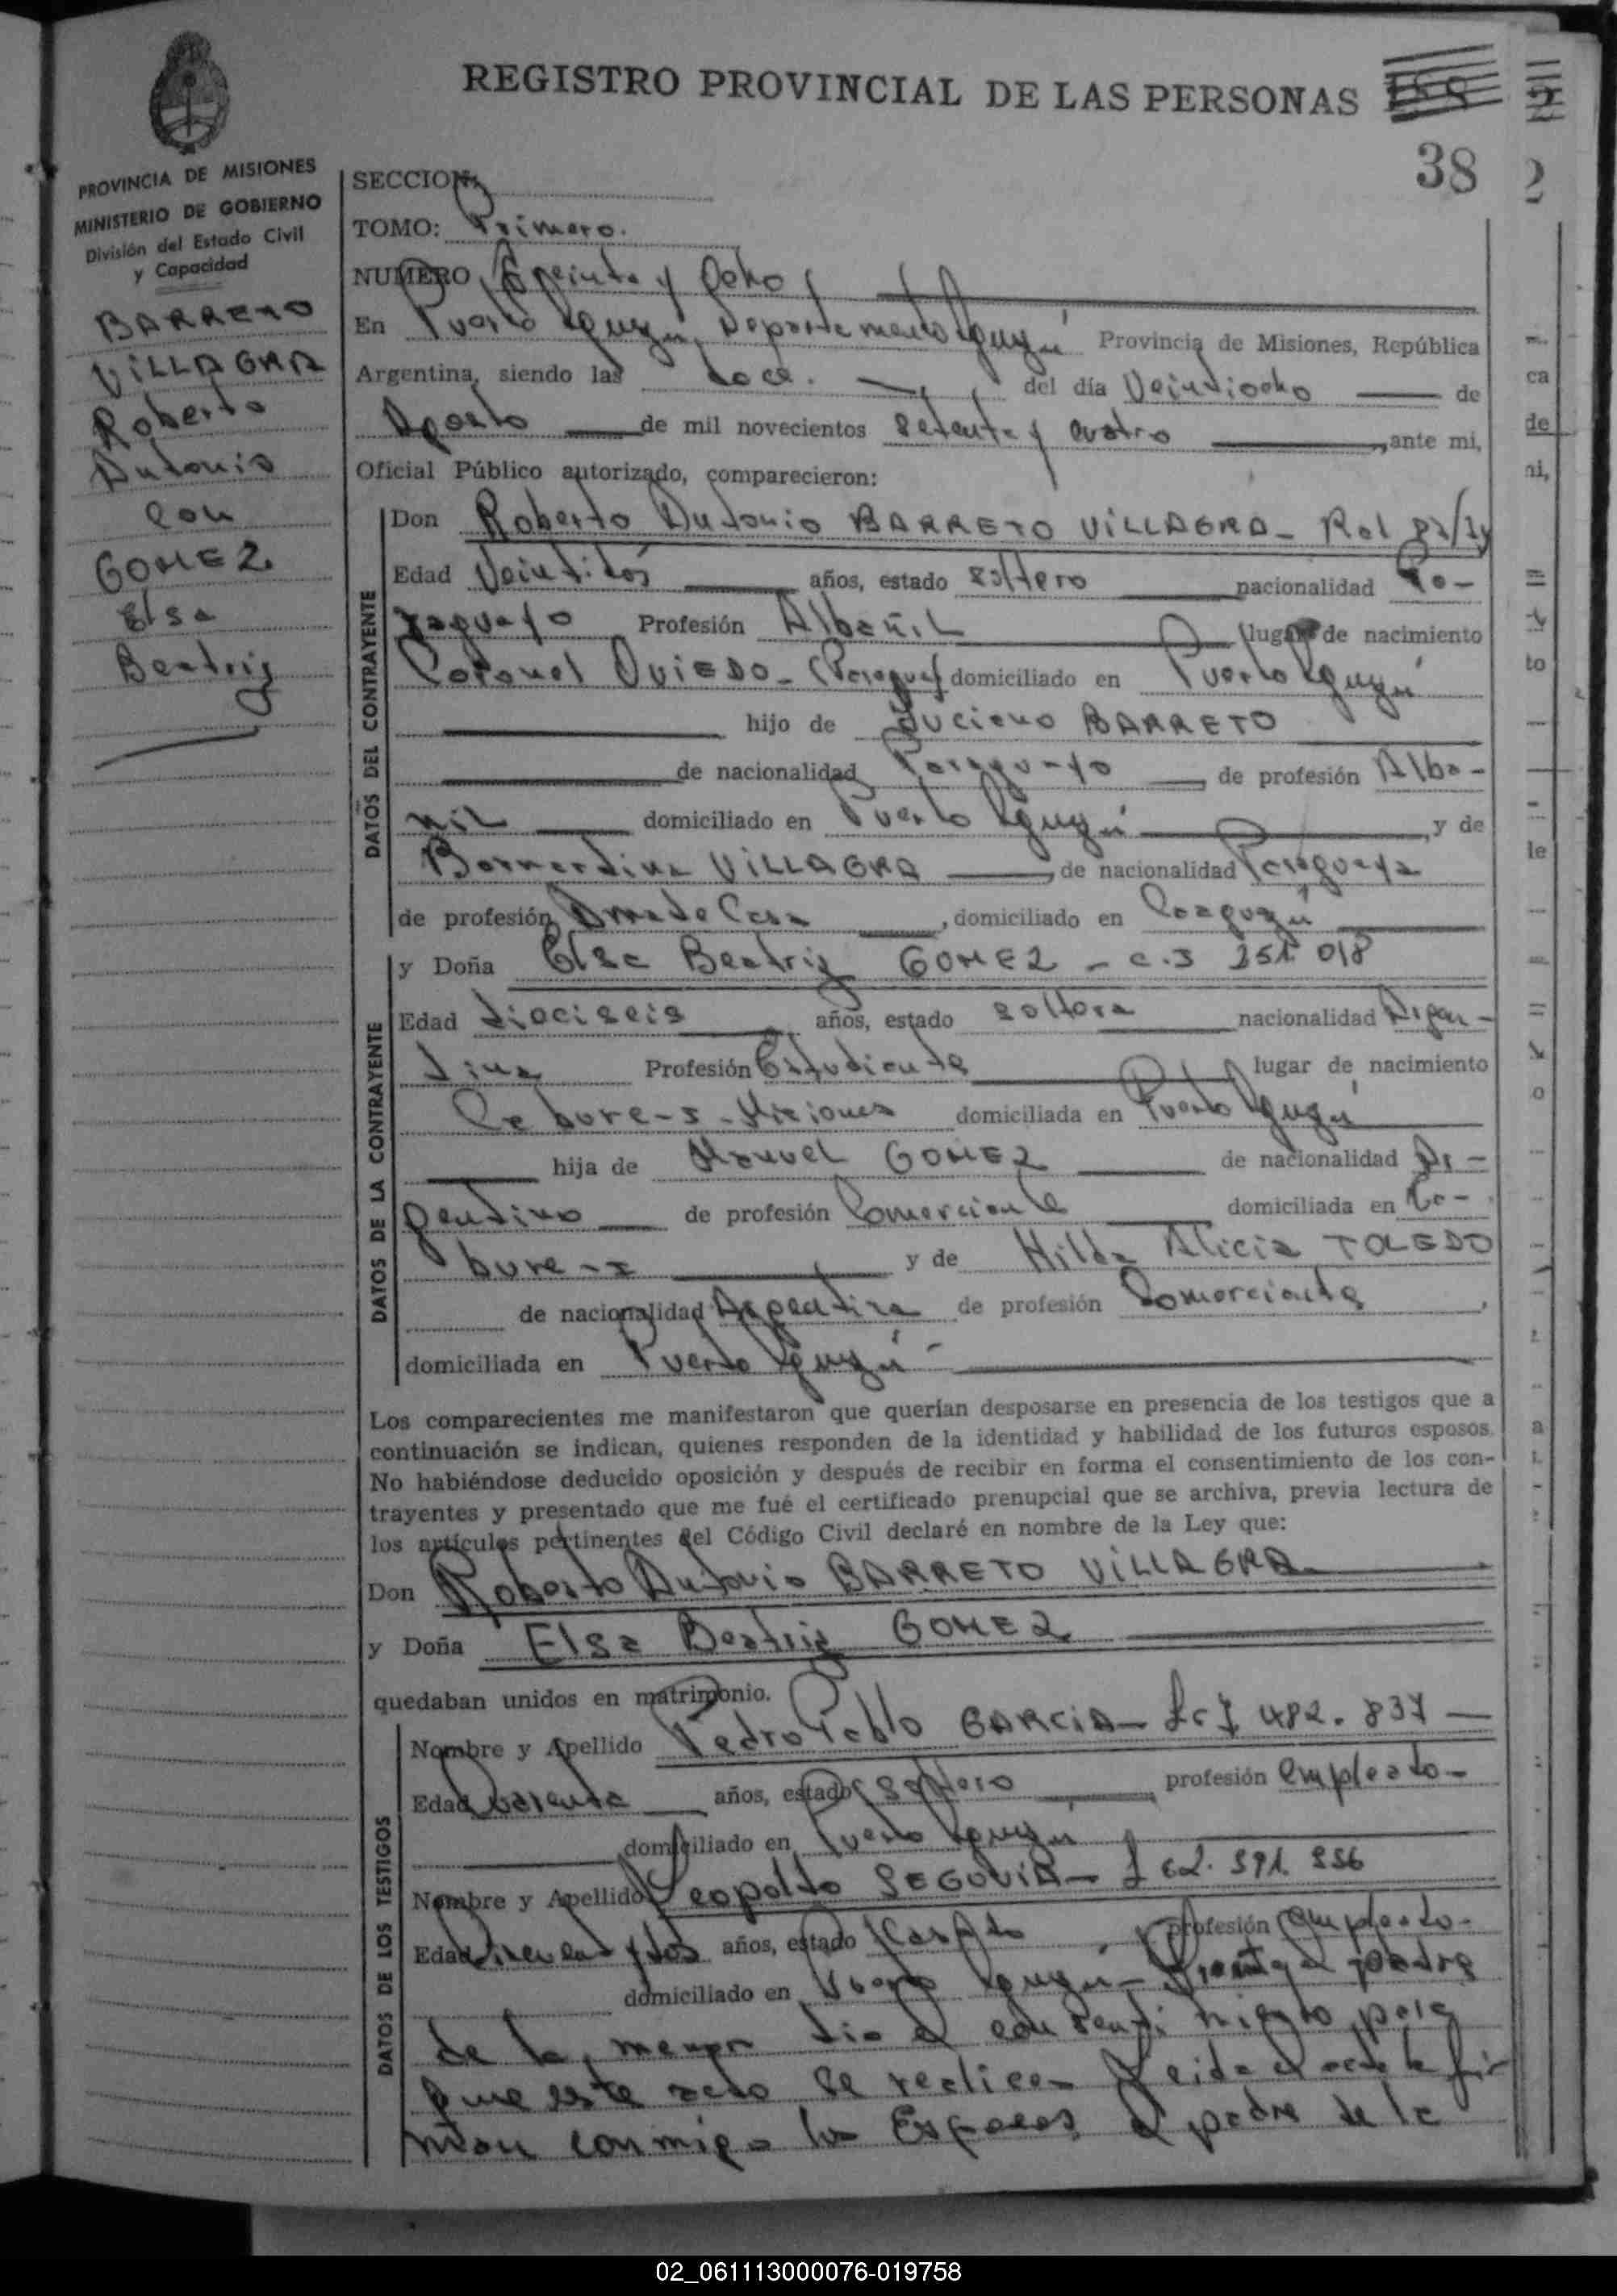 REGISTRO PROVINCIAL DE LAS PERSONAS
38
PROVINCIA DE MISIONES
MINISTERIO DE GOBIERNO
División del Estado Civil
y Capacidad
BARRETO
VILLAGRA
Roberto
Antonio
con
GOMEZ
Elsa
Beatriz
SECCION:
TOMO: Primero.
NUMERO Treinta y Ocho
En Puerto Iguazú, Departamento Iguazú Provincia de Misiones, República
Argentina, siendo las doce. del día Veintiocho de
Agosto de mil novecientos setenta y cuatro, ante mi,
Oficial Público autorizado, comparecieron:
DATOS DEL CONTRAYENTE
Don Roberto Antonio BARRETO VILLAGRA-
Edad Veintidós años, estado soltero nacionalidad Pa-
raguayo Profesión Albañil lugar de nacimiento
Coronel OVIEDO- (Paraguay) domiciliado en Puerto Iguazú
hijo de Luciano BARRETO
de nacionalidad Paraguayo de profesión Alba-
ñil domiciliado en Puerto Iguazú, y de
Bernardina VILLAGRA, de nacionalidad Paraguaya
de profesión Ama de Casa, domiciliado en Caaguazú
DATOS DE LA CONTRAYENTE
y Doña Elsa Beatriz GOMEZ - 018
Edad dieciseis años, estado soltera nacionalidad Argen-
tina Profesión Estudiante lugar de nacimiento
Misiones domiciliada en Puerto Iguazú
hija de Manuel GOMEZ de nacionalidad Ar-
gentino de profesión Comerciante domiciliada en
y de Hilda Alicia TOLEDO
de nacionalidad Argentina de profesión Comerciante,
domiciliada en Puerto Iguazú-
Los comparecientes me manifestaron que querían desposarse en presencia de los testigos que a
continuación se indican, quienes responden de la identidad y habilidad de los futuros esposos.
No habiéndose deducido oposición y después de recibir en forma el consentimiento de los con-
trayentes y presentado que me fué el certificado prenupcial que se archiva, previa lectura de
los artículos pertinentes del Código Civil declaré en nombre de la Ley que:
Don Roberto Antonio BARRETO VILLAGRA
y Doña Elsa Beatriz GOMEZ
quedaban unidos en matrimonio.
DATOS DE LOS TESTIGOS
Nombre y Apellido Pedro Pablo GARCIA- 482.837
Edad Cuarenta años, estado soltero profesión empleado-
domiciliado en Puerto Iguazú
Nombre y Apellido Leopoldo SEGOVIA-
Edad cincuenta y dos años, estado Casado profesión empleado-
domiciliado en Puerto Iguazú- padre
de la menor dio el consentimiento para
que este acto se realice- Leida el acta la fir
man conmigo los Esposos el padre de la
02_061113000076-019758